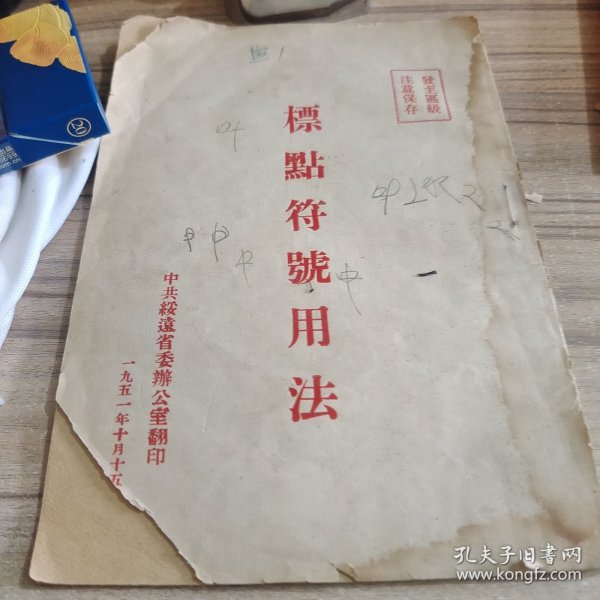 發至區級
注意保存
標點符號用法
中共綏遠省委辦公室翻印
一九五一年十月十五
20
孔夫子旧书网
www.kongfz.com